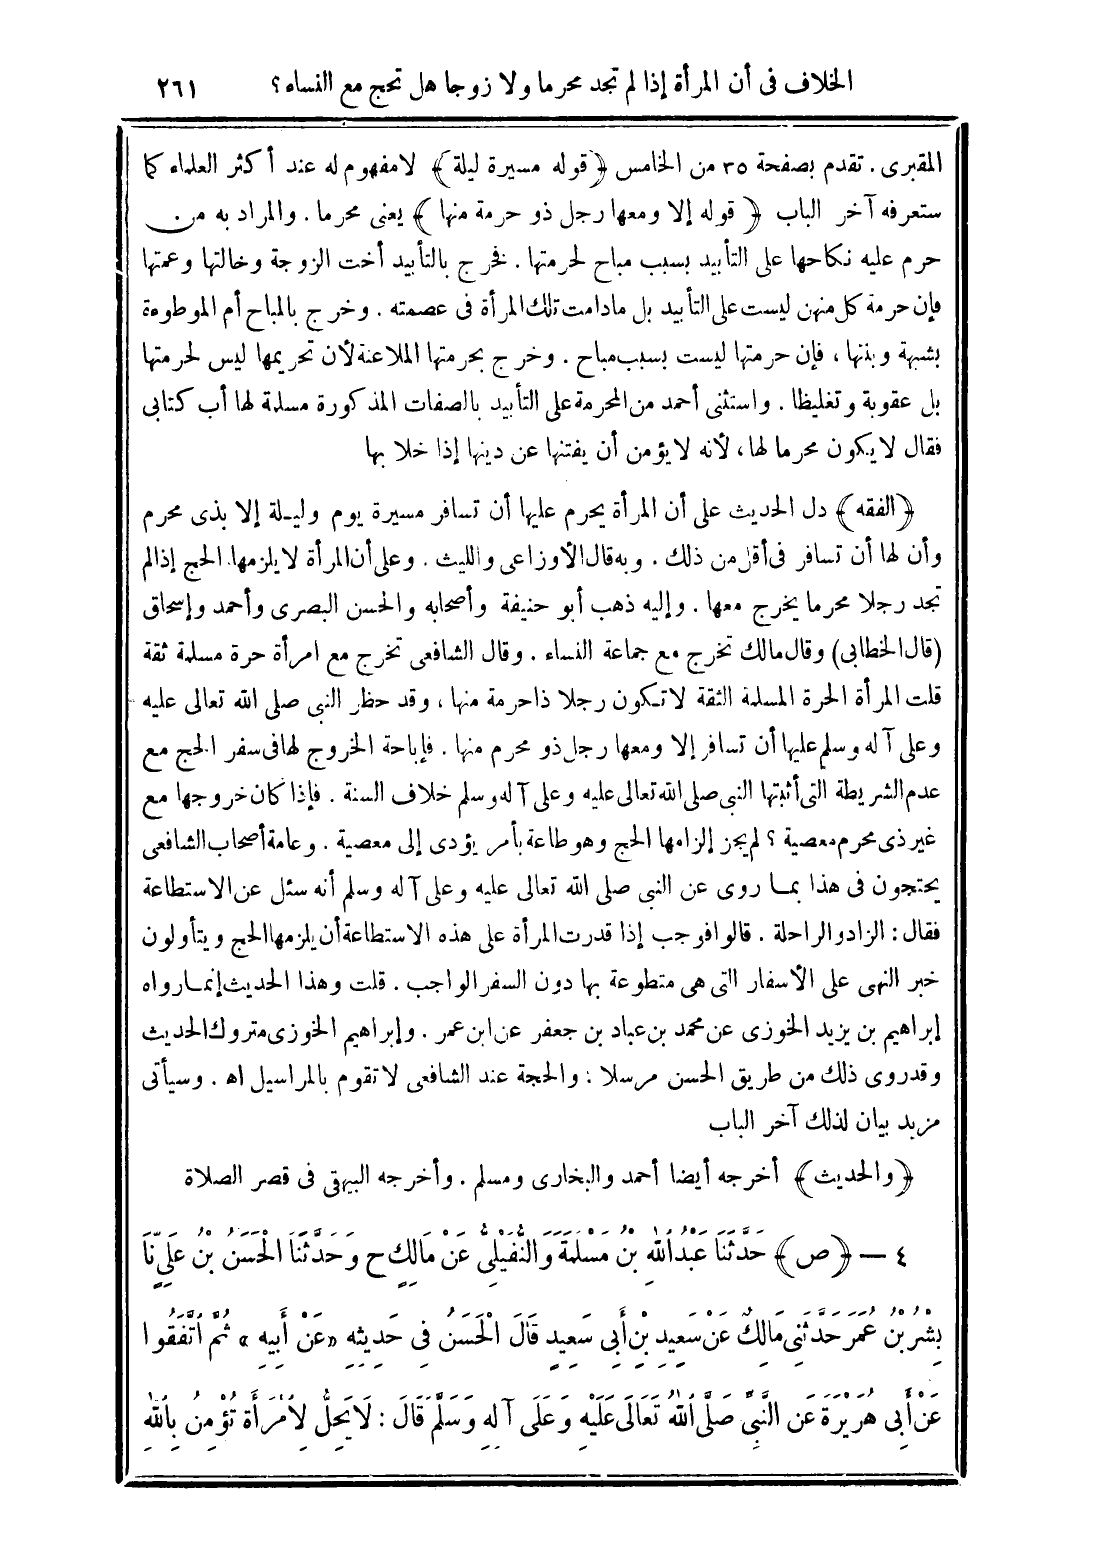 الخلاف فى أن المرأة إذا لم تجد محرما ولا زوجا هل تحج مع النساء؟ ٢٦١
المقبرى. تقدم بصفحة ٣٥ من الخامس ﴿قوله مسيرة ليلة﴾ لامفهوم له عند أكثر العلماء كما
ستعرفه آخر الباب ﴿قوله إلا ومعها رجل ذو حرمة منها﴾ يعنى محرما. والمراد به من
حرم عليه نكاحها على التأبيد بسبب مباح لحرمتها. فخرج بالتأبيد أخت الزوجة وخالتها وعمتها
فإن حرمة كل منهن ليست على التأبيد بل مادامت تلك المرأة فى عصمته. وخرج بالمباح أم الموطوءة
بشبهة وبنتها، فإن حرمتها ليست بسبب مباح. وخرج بحرمتها الملاعنة لأن تحريمها ليس لحرمتها
بل عقوبة وتغليظا. واستثنى أحمد من المحرمة على التأبيد بالصفات المذكورة مسلمة لها أب كتابى
فقال لايكون محرما لها، لأنه لايؤمن أن يفتنها عن دينها إذا خلا بها
﴿الفقه﴾ دل الحديث على أن المرأة يحرم عليها أن تسافر مسيرة يوم وليلة إلا بذى محرم
وأن لها أن تسافر فى أقل من ذلك. وبه قال الأوزاعى والليث. وعلى أن المرأة لايلزمها الحج إذا لم
تجد رجلا محرما يخرج معها. وإليه ذهب أبو حنيفة وأصحابه والحسن البصرى وأحمد وإسحاق
(قال الخطابى) وقال مالك تخرج مع جماعة النساء. وقال الشافعى تخرج مع امرأة حرة مسلمة ثقة
قلت المرأة الحرة المسلمة الثقة لاتكون رجلا ذا حرمة منها، وقد حظر النبى صلى الله تعالى عليه
وعلى آله وسلم عليها أن تسافر إلا ومعها رجل ذو محرم منها. فإباحة الخروج لها فى سفر الحج مع
عدم الشريطة التى أثبتها النبى صلى الله تعالى عليه وعلى آله وسلم خلاف السنة. فإذا كان خروجها مع
غير ذى محرم معصية؟ لم يجز إلزامها الحج وهو طاعة بأمر يؤدى إلى معصية. وعامة أصحاب الشافعى
يحتجون فى هذا بما روى عن النبى صلى الله تعالى عليه وعلى آله وسلم أنه سئل عن الاستطاعة
فقال: الزاد والراحلة. قالوا فوجب إذا قدرت المرأة على هذه الاستطاعة أن يلزمها الحج ويتأولون
خبر النهى على الأسفار التى هى متطوعة بها دون السفر الواجب. قلت وهذا الحديث إنما رواه
إبراهيم بن يزيد الخوزى عن محمد بن عباد بن جعفر عن ابن عمر. وإبراهيم الخوزى متروك الحديث
وقدروى ذلك من طريق الحسن مرسلا: والحجة عند الشافعى لاتقوم بالمراسيل اه. وسيأتى
مزيد بيان لذلك آخر الباب
﴿والحديث﴾ أخرجه أيضا أحمد والبخارى ومسلم. وأخرجه البيهقى فى قصر الصلاة
٤ — ﴿ص﴾ حَدَّثَنَا عَبْدُ اللهِ بْنُ مَسْلَمَةَ وَالنُّفَيْلِىُّ عَنْ مَالِكٍ ح وَحَدَّثَنَا الْحَسَنُ بْنُ عَلِىٍّ نَا
بِشْرُ بْنُ عُمَرَ حَدَّثَنِى مَالِكٌ عَنْ سَعِيدِ بْنِ أَبِى سَعِيدٍ قَالَ الْحَسَنُ فِى حَدِيثِهِ «عَنْ أَبِيهِ» ثُمَّ اتَّفَقُوا
عَنْ أَبِى هُرَيْرَةَ عَنِ النَّبِىِّ صَلَّى اللهُ تَعَالَى عَلَيْهِ وَعَلَى آلِهِ وَسَلَّمَ قَالَ: لَا يَحِلُّ لِامْرَأَةٍ تُؤْمِنُ بِاللهِ